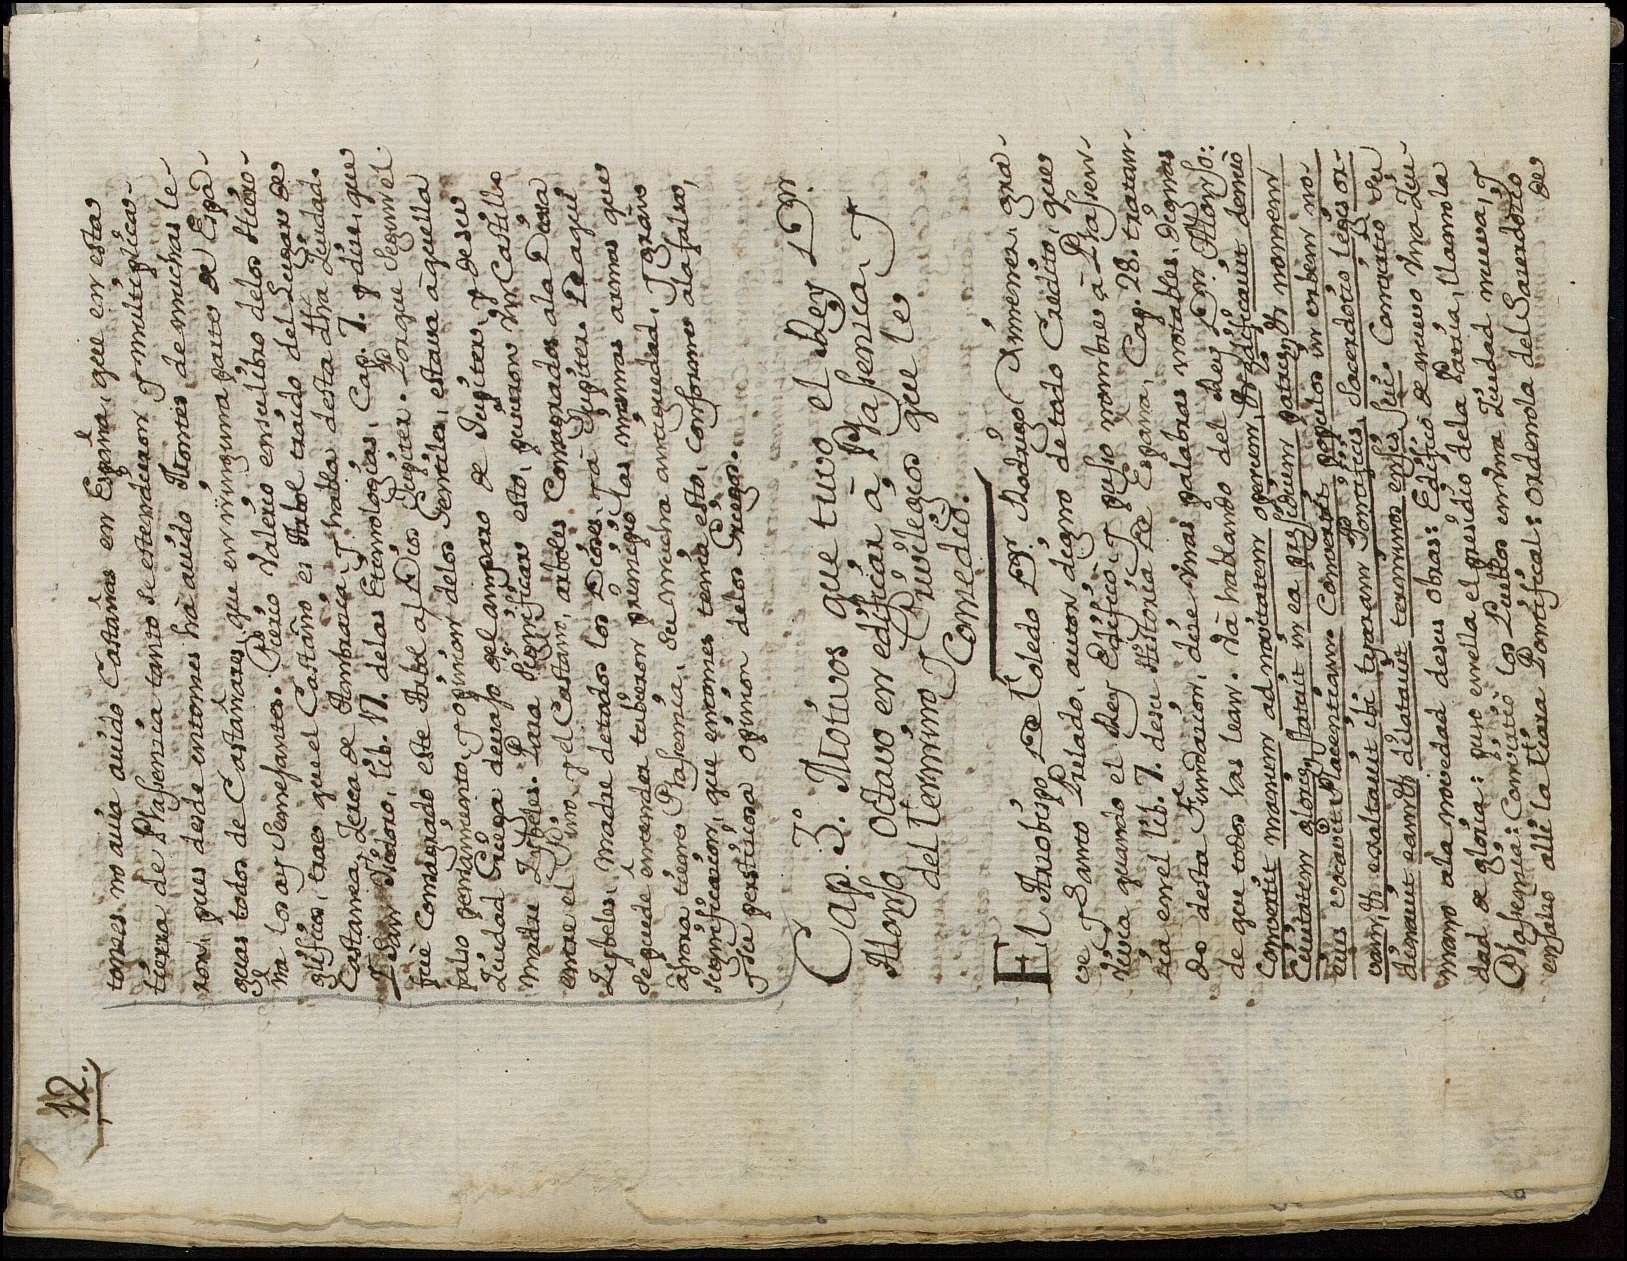 12.
tonces no auia auido Castañas en España, que en esta
tierra de Plasencia tanto se estendieron y multiplica-
ron, pues desde entonces hà auido Montes de muchas le-
guas todos de Castañares, que en ninguna parte de Espa-
ña los ay semejantes. Pierio Valerio en su libro de los Hiero-
glificos, trae que el Castaño es Arbol traido del Lugar de
Castanea, Zerca de y habla desta dha Ziudad.
San Ysidoro, lib. 17. de las Etimologias, Cap. 7. y dice, que
fuè Consagrado este Arbol al Dios Jupiter. Porque segun el
falso pensamiento, y opinion de los Gentiles, estava aquella
Ziudad Griega devajo del amparo de Jupiter, y de su
Madre Zybeles. Para significar esto, pusieron un Castillo
entre el Pino, y el Castano, arboles Consagrados a la Diosa
Zeybeles, Madre de todos los Dioses, y à Jupiter. De aqui
se puede entender tubieron principio las mismas armas que
agora tiene Plasencia, de mucha antiguedad, y
significacion, que entonces tenia esto, conforme a la falsa,
y su perstiziosa opinion de los Griegos.
Cap. 3º. Motivos que tuvo el Rey Dn.
Alonso Octavo en edificar à Plasencia, y
del Termino y Privilegios que le
Concediò.
El Arzobispo De Toledo Dn. Rodrigo Ximenez, gra-
ve y Santo Prelado, autor digno de todo Credito, que
viuia quando el Rey Edificò, y puso nombre à Plasen-
cia en el lib. 7. de su Historia De España, Cap. 28. tratan-
do desta Fundacion, dice unas palabras notables, dignas
de que todos las lean. Và hablando del Rey Dn. Alonso:
Convertit manum ad novitatem operum, & edificauit denuò
Ciuitatem gloriæ, statuit in ea presidium patriæ, & nomen
eius vocauit Placentiam: Convertit populos in urbem no-
vam, & exaltauit ibi tyaram Pontificis, Sacerdotis legis or-
dinauit eam, & dilatauit terminos ensis sui. Convirtiò su
mano a la novedad de sus obras: Edificò de nuevo una Ziu-
dad de gloria: puso en ella el presidio de la Patria, llamola
Plasencia: Convirtiò los Pueblos en una Ziudad nueva, y
ensalzò alli la tiara Pontifical: ordenola del Sacerdocio
de